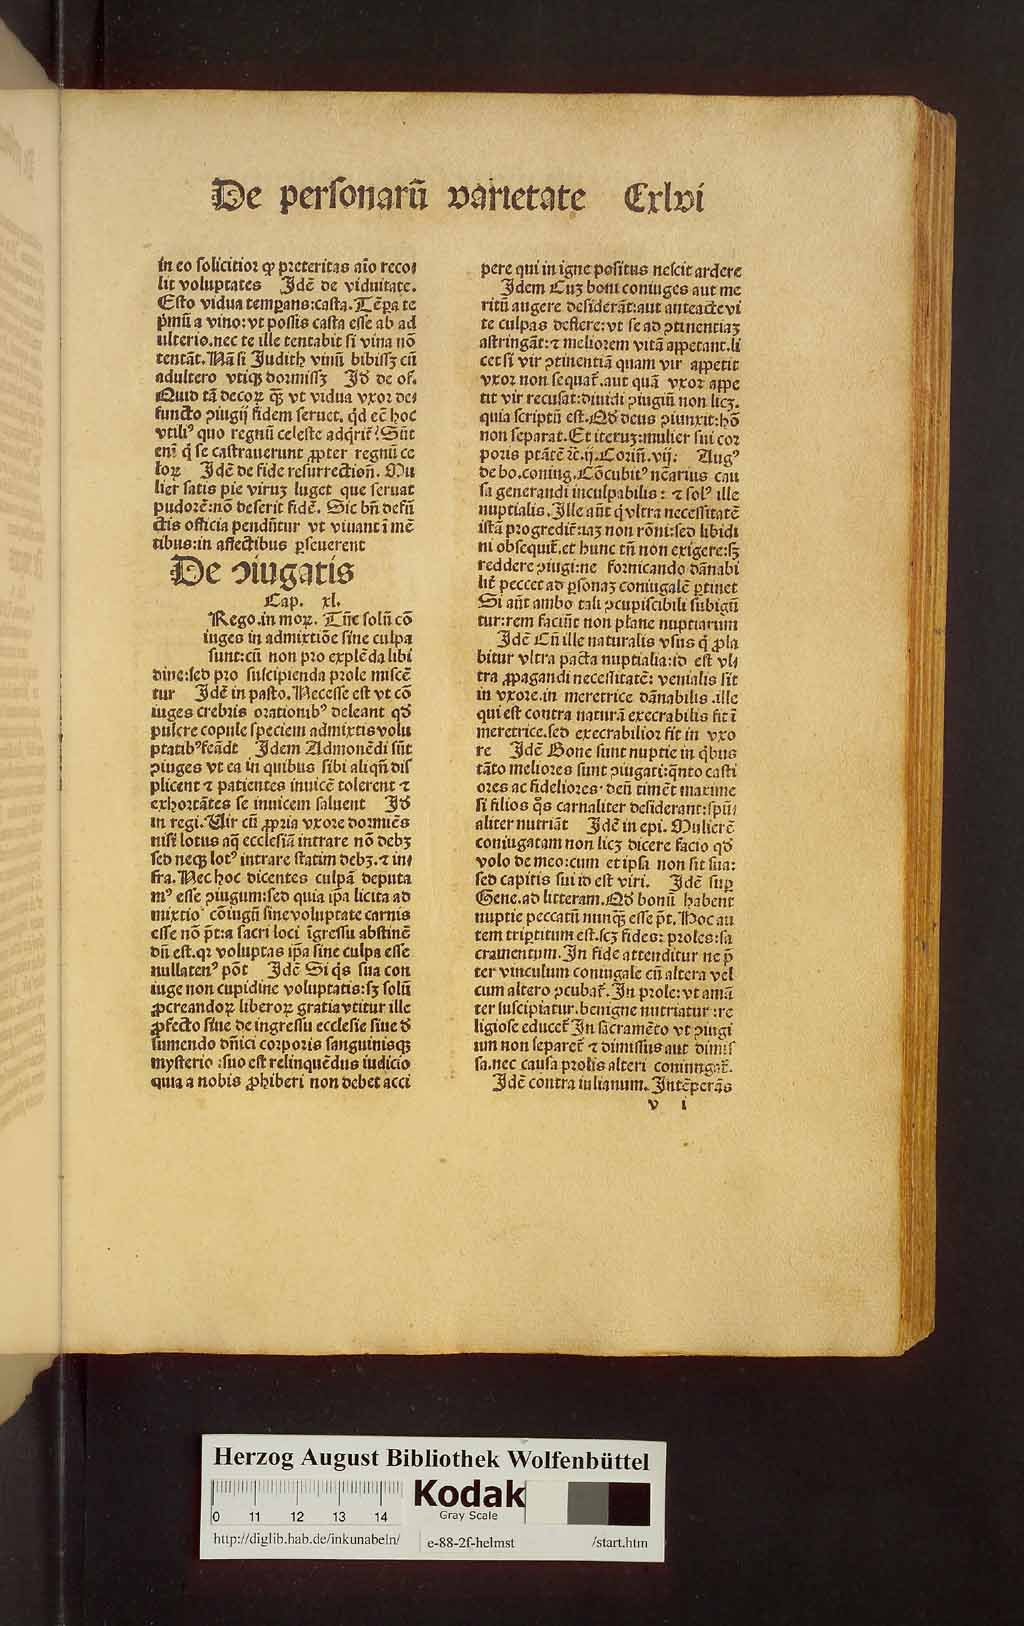 De personarū varietate Cxlvi
in eo solicitior qͥ preteritas aīo reco⸗
lit voluptates Idē de viduitate.
Esto vidua temꝑans:casta. Tēꝑa te
pͥmū a vino:vt possis casta esse ab ad
ulterio.nec te ille tentabit si vina nō
tentāt. Nā si Iudith vinū bibissꝫ cū
adultero vtiqꝫ dormissꝫ Idē de of.
Quid tā decoꝝ qꝫ vt vidua vxor de⸗
functo ꝯiugij fidem seruet. qͥd eē hoc
vtiliꝰ quo regnū celeste adqͥrit̄? Sūt
enī qͥ se castrauerunt ꝓpter regnū ce
loꝝ Idē de fide resurrectioñ. Mu
lier satis pie viruꝫ luget que seruat
pudorē:nō deserit fidē. Sic bñ defū
ctis officia pendñtur vt viuant ī mē
tibus:in affectibus ꝑseuerent
De ꝯiugatis
Cap. xl.
Rego.in moꝝ. Tūc solū cō
iuges in admixtiōe sine culpa
sunt:cū non pro explēda libi
dine:sed pro suscipienda prole miscē
tur Idē in pasto. Necesse est vt cō
iuges crebris orationibꝰ deleant qď
pulcre copule speciem admixtis volu
ptatibꝰ feādt Idem Admonēdi sūt
ꝯiuges vt ea in quibus sibi aliqñ dis
plicent ⁊ patientes inuicē tolerent ⁊
exhortātes se inuicem saluent Iď
in regi. Uir cū ꝓpria vxore dormiēs
nisi lotus aqͣ ecclesiā intrare nō debꝫ
sed neqꝫ lotꝰ intrare statim debꝫ.⁊ in⸗
fra. Nec hoc dicentes culpā deputa
mꝰ esse ꝯiugum:sed quia ip̄a licita ad
mixtio cōiugū sine voluptate carnis
esse nō p̄t:a sacri loci īgressu abstinē
dū est.qꝛ voluptas ip̄a sine culpa esse
nullatenꝰ pōt Idē Si qͥs sua con
iuge non cupidine voluptatis:sꝫ solū
ꝓcreandoꝝ liberoꝝ gratia vtitur ille
ꝓfecto siue de ingressu ecclesie siue ď
sumendo dñici corporis sanguinisqꝫ
mysterio :suo est relinquēdus iudicio
quia a nobis ꝓhiberi non debet acci
pere qui in igne positus nescit ardere
Idem Cuꝫ boni coniuges aut me
ritū augere desiderāt:aut anteacte vi
te culpas deflere:vt se ad ꝯtinentiaꝫ
astringāt:⁊ meliorem vitā appetant.li
cet si vir ꝯtinentiā quam vir appetit
vxor non sequat̄.aut quā vxor appe
tit vir recusat:diuidi ꝯiugiū non licꝫ.
quia scriptū est. Qď deus ꝯiunxit:hō
non separat. Et iteruꝫ:mulier sui cor
poris ptātē ⁊c̄.ij. Coriñ.vij: Augꝰ
de bo.coniug. Cōcubitꝰ nc̄arius cau
sa generandi inculpabilis: ⁊ solꝰ ille
nuptialis. Ille aūt qͥ vltra necessitatē
istā progredit̄:iaꝫ non rōni:sed libidi
ni obsequit̄.et hunc tñ non exigere:sꝫ
reddere ꝯiugi:ne fornicando dānabi
lit̄ peccet ad ꝑsonaꝫ coniugalē ꝑtinet
Si aūt ambo tali ꝯcupiscibili subigū
tur:rem faciūt non plane nuptiarum
Idē Cū ille naturalis vsus qͥ ꝓla
bitur vltra pacta nuptialia:id est vl⸗
tra ꝓpagandi necessitatē: venialis sit
in vxore.in meretrice dānabilis .ille
qui est contra naturā execrabilis fit ī
meretrice.sed execrabilior fit in vxo
re Idē Bone sunt nuptie in qͥbus
tāto meliores sunt ꝯiugati:qͣnto casti
ores ac fideliores· deū timēt maxime
si filios qͦs carnaliter desiderant:spūⸯ
aliter nutriāt Idē in epi. Mulierē
coniugatam non licꝫ dicere facio qď
volo de meo:cum et ipsa non sit sua:
sed capitis sui id est viri. Idē suꝑ
Gene.ad litteram. Qď bonū habent
nuptie peccatū nunqͣꝫ esse p̄t. Hoc au
tem tripͥtitum est.scꝫ fides: proles:sa
cramentum. In fide attenditur ne p̄
ter vinculum coniugale cū altera vel
cum altero ꝯcubat̄. In prole: vt amā
ter suscipiatur.benigne nutriatur :re
ligiose educet̄ In sacramēto vt ꝯiugi
um non separet̄ ⁊ dimissus aut dimis
sa.nec causa prolis alteri coniungat̄.
Idē contra iulianum. Intēperās
v i
Herzog August Bibliothek Wolfenbüttel
0 11 12 13 14
Kodak
Gray Scale
http://diglib.hab.de/inkunabeln/ e-88-2f-helmst /start.htm